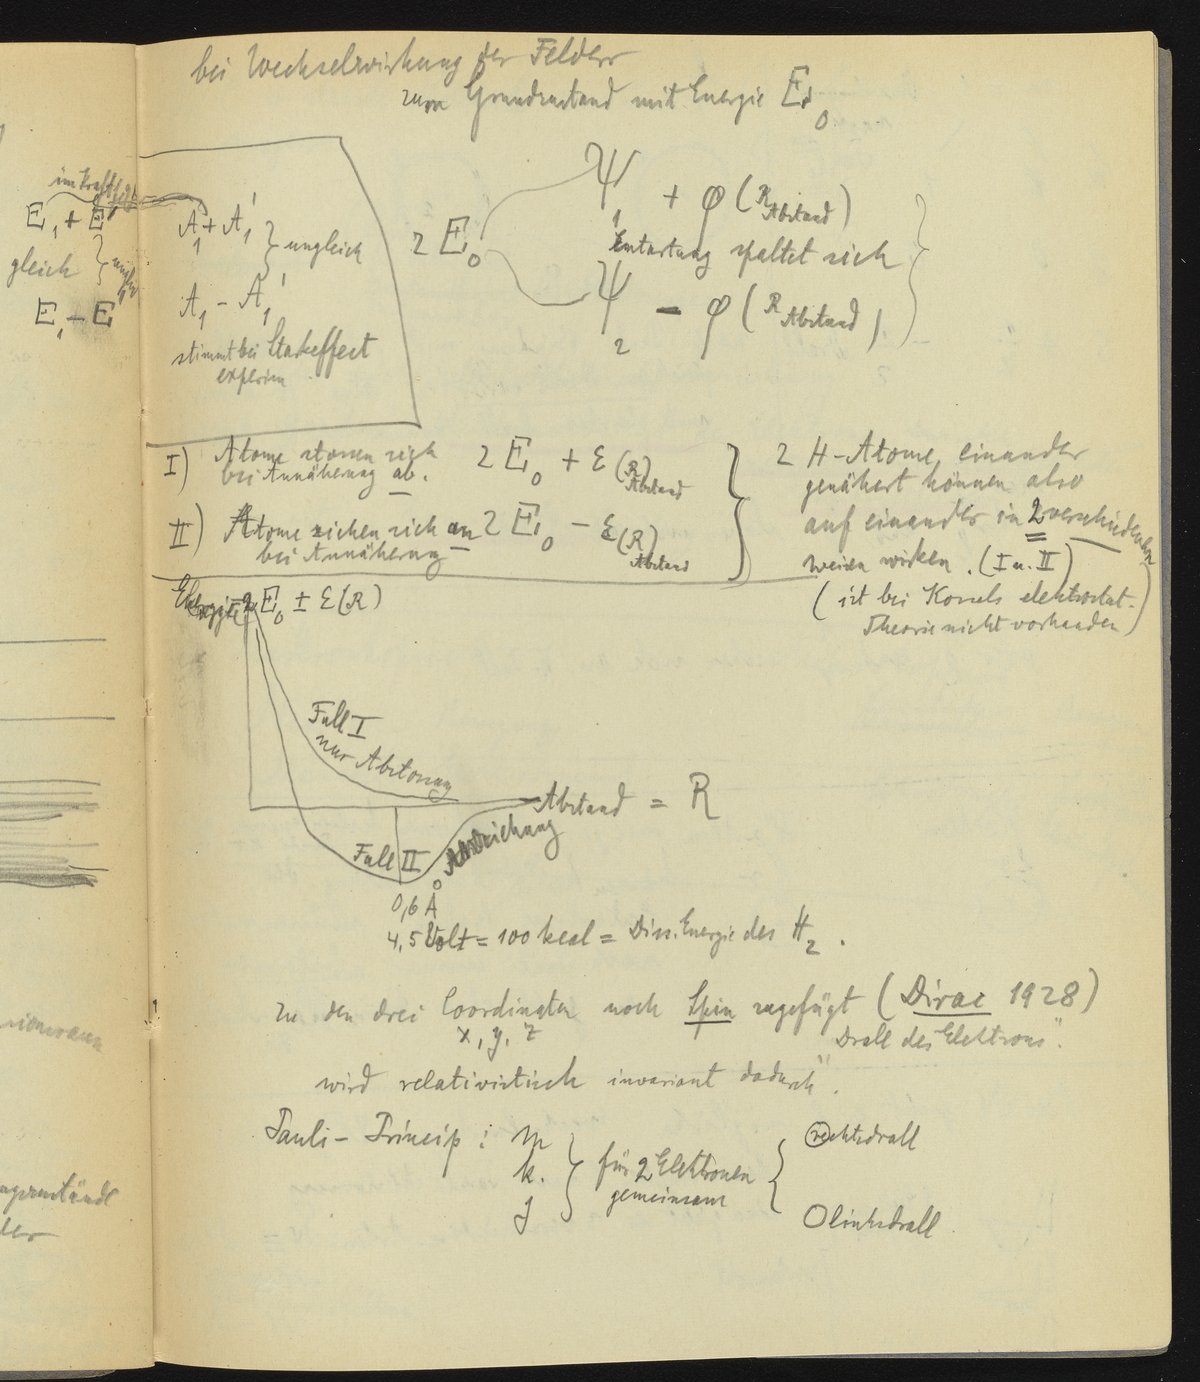 bei Wechselwirkung der Felder
zum Grundzustand mit Energie E₀
im Kraftfeld
E₁ + E
gleich
E₁ – E
A₁ + A₁'
ungleich
A₁ – A₁'
stimmt bei Starkeffect
experim
2 E₀
Ψ₁ + φ (R Abstand)
Entartung spaltet sich
Ψ₂ – φ (R Abstand)
I) Atome stossen sich
bei Annäherung ab.
2 E₀ + ε (R) Abstand
II) Atome ziehen sich an
bei Annäherung
2 E₀ – ε (R) Abstand
2 H-Atome, einander
genähert können also
auf einander in 2 verschiedenen
weisen wirken. (I u. II)
(ist bei Kossels elektrostat.
Theorie nicht vorhanden)
Energie 2 E₀ ± ε (R)
Fall I
nur Abstossung
Abstand = R
Fall II
Anziehung
0,6 Å
4,5 Volt = 100 kcal = Diss. Energie des H₂.
zu den drei Coordinaten noch Spin zugefügt (Dirac 1928)
x, y, z
Drall des Elektrons".
wird relativistisch invariant dadurch".
Pauli-Princip:
m
k.
j
für 2 Elektronen
gemeinsam
rechtsdrall
linksdrall